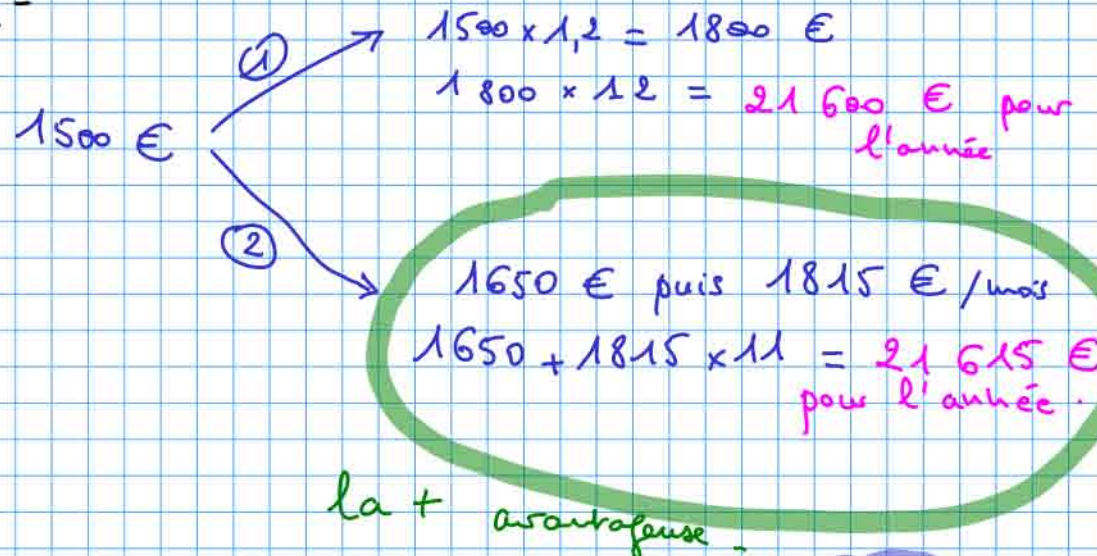 ① 1500 x 1,2 = 1800 €
1 800 x 12 = 21 600 € pour
l'année
1500 €
②
1650 € puis 1815 € /mois
1650 + 1815 x 11 = 21 615 €
pour l'année.
la + avantageuse.